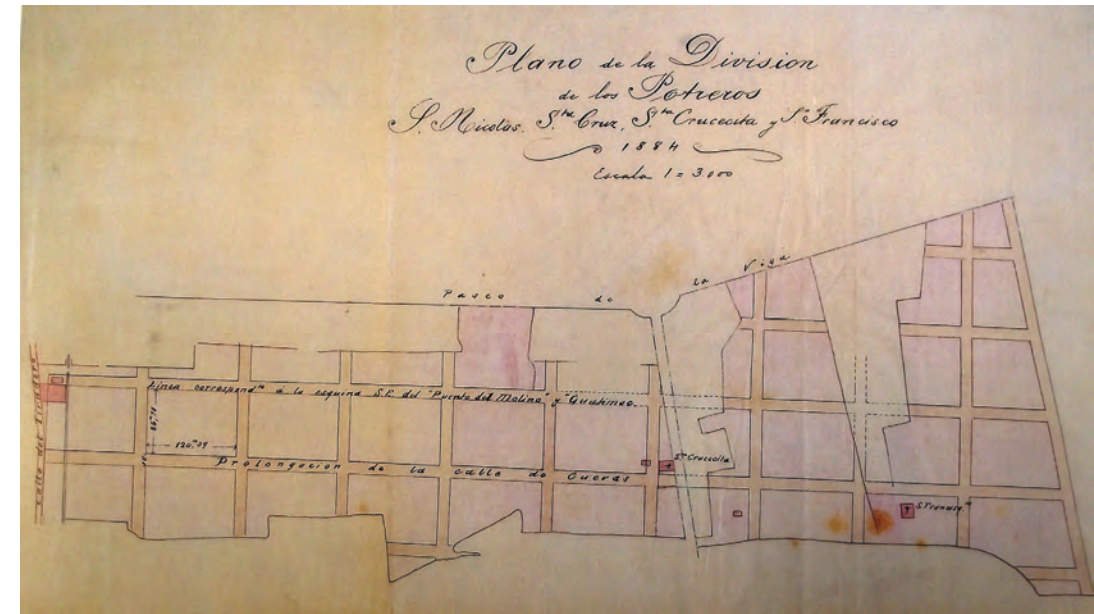 Plano de la Division
de los Potreros
S. Nicolas. S.ta Cruz, S.ta Crucecita y S.n Francisco
1884
Escala 1 = 3.000
Paseo de la Viga
Linea correspond.te á la esquina S.E. del "Puente del Molino" y "Guatimoc.
120.m 09
Prolongacion de la calle de Cuevas
S.ta Crucecita
S. Francisq.to